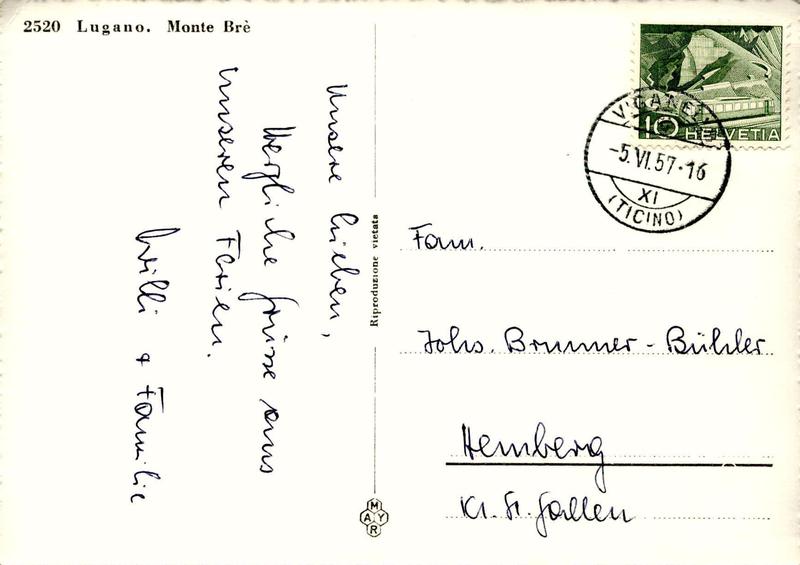 2520 Lugano. Monte Brè
Unsere Lieben,
herzliche Grüsse aus
unseren Ferien.
Willi + Familie
Riproduzione vietata
MAYR
10 HELVETIA
VIGANELLO
-5.VI.57-16
XI
(TICINO)
Fam.
Johs. Brunner-Bühler
Hemberg
Kt. St. Gallen